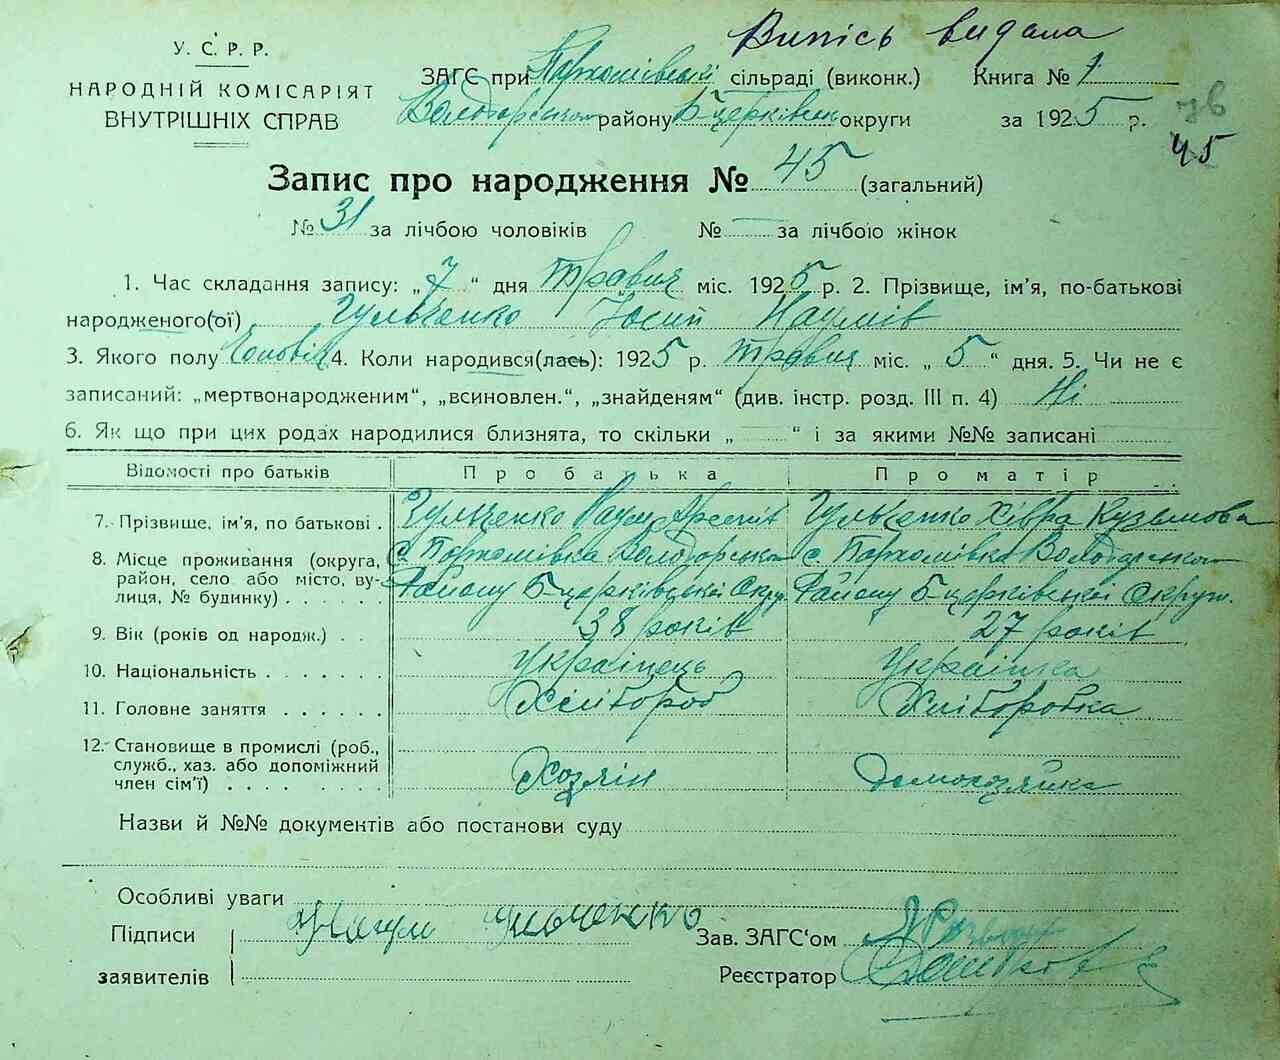 Випісь видана
У. С. Р. Р.
НАРОДНІЙ КОМІСАРІЯТ
ВНУТРІШНІХ СПРАВ
ЗАГС при Пархомівській сільраді (виконк.) Книга № 1
районуБ-Церківськ округи за 1925 р.
45
Запис про народження № 45 (загальний)
№ 31 за лічбою чоловіків № — за лічбою жінок
1. Час складання запису: „ 7 “ дня Травня міс. 1925 р. 2. Прізвище, ім'я, по-батькові
народженого(ої) Гульченко Йосип Наумів
3. Якого полу Чоловік 4. Коли народився(лась): 1925 р. Травня міс. „ 5 “ дня. 5. Чи не є
записаний: „мертвонародженим“, „всиновлен.“, „знайденям“ (див. інстр. розд. III п. 4) Ні
6. Як що при цих родах народилися близнята, то скільки „ “ і за якими №№ записані
Відомості про батьків Про батька Про матір
7. Прізвище, ім'я, по батькові . Гульченко Наум Арсенів Гульченко Хівра Кузьмова
8. Місце проживання (округа, район, село або місто, вулиця, № будинку) . . . . . с. Пархомівка Володарськ с. Пархомівка Володарськ
Району Б-царківської Окру. Району Б-царківської Округи.
9. Вік (років од народж.) . . 38 років 27 років
10. Національність . . . . . . . Українець Українка
11. Головне заняття . . . . . . Хлібороб Хліборобка
12. Становище в промислі (роб., служб., хаз. або допоміжний член сім'ї) . . . . . . . . Хозяін Домохозяйка
Назви й №№ документів або постанови суду
Особливі уваги
Підписи Наум Гульченко Зав. ЗАГС'ом
заявителів Реєстратор